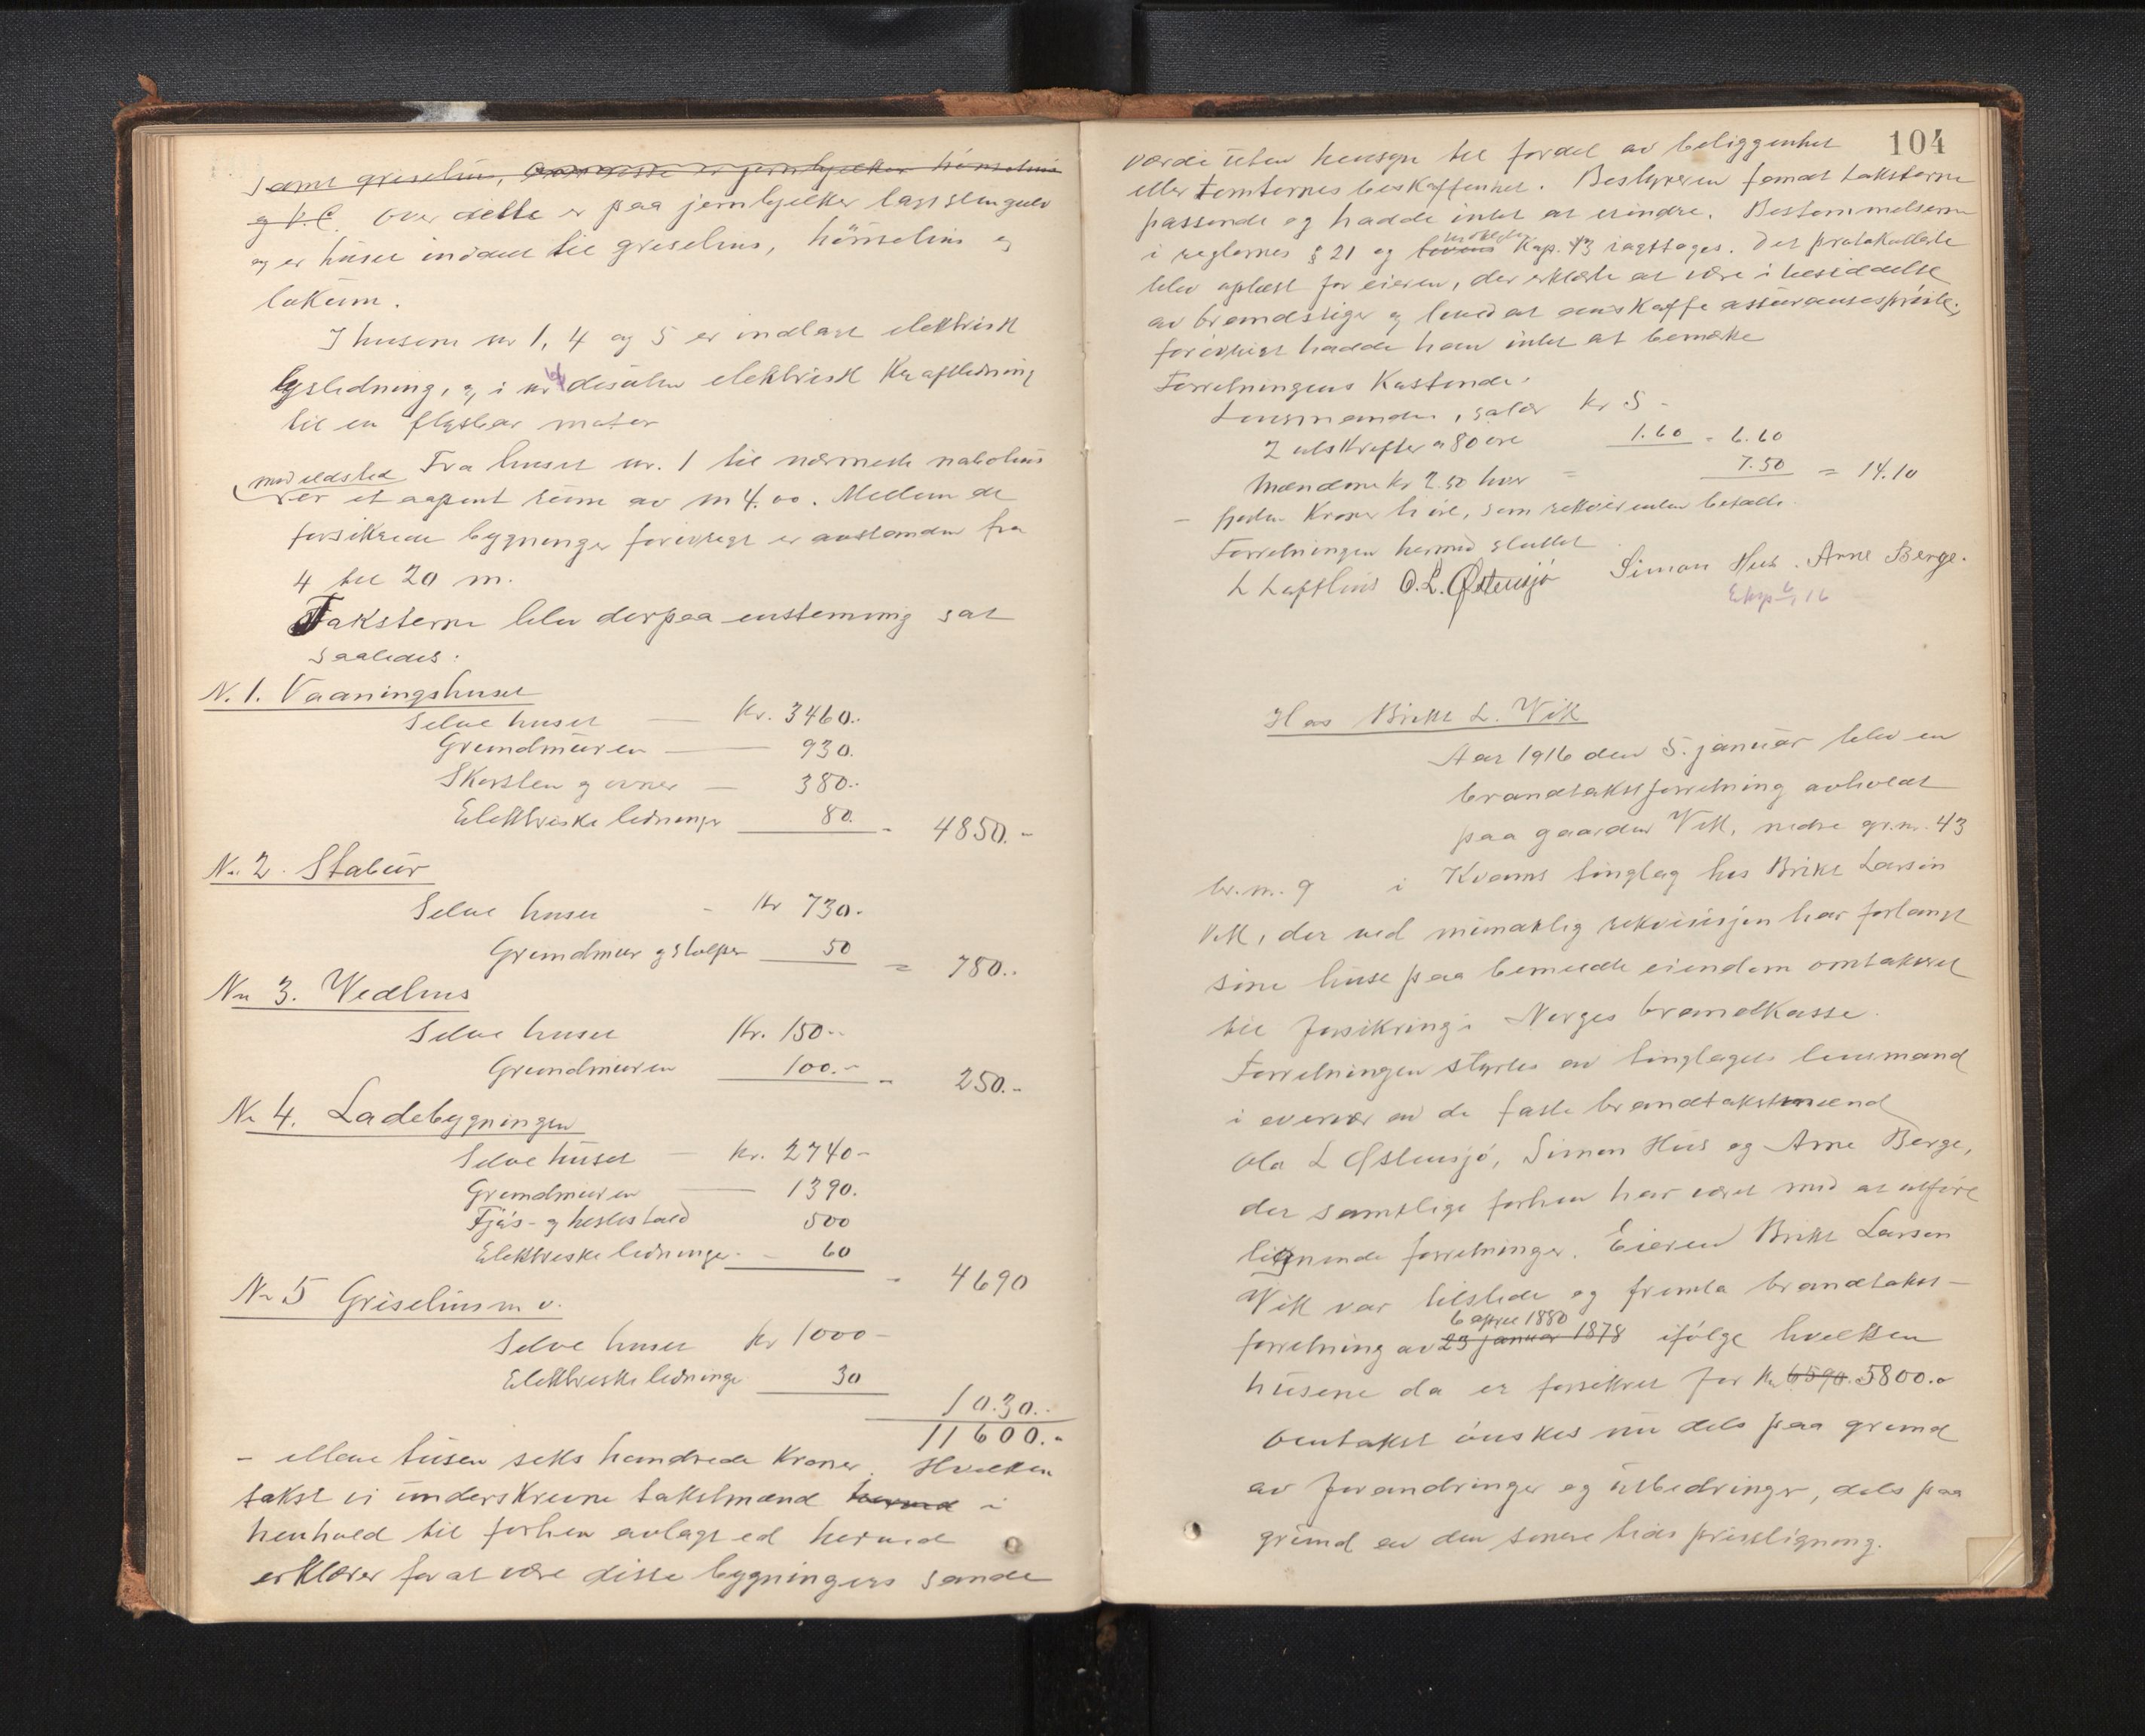 samt griselius, jernbjelker hönsehus
og V.C. Over dette er paa jernbjelker lagt stengulv
og er huset inddelt til grisehus, hönsehus og
lokum.
I husene nr 1, 4 og 5 er indlagt elektrisk
lysledning, og i nr desuten elektrisk kraftledning
til en flytbar motor
med ildsted Fra huset nr. 1 til nærmeste nabohus
er et aapent rum av m 4.00. Mellem de
forsikrede bygninger forövrigt er avstanden fra
4 til 20 m.
Taksterne blev derpaa enstemmig sat
saaledes:
N. 1. Vaaningshuset
Selve huset — Kr. 3460.-
Grundmuren — 930.
Skorsten og ovner — 380.-
Elektriske ledninger 80. - 4850.-
Nr. 2. Stabur
Selve huset - Kr 730.-
Grundmur og stolper 50 = 780.-
Nr 3. Vedhus
Selve huset Kr. 150.-
Grundmuren 100.- - 250.-
Nr 4. Ladebygningen
Selve huset — Kr. 2740-
Grundmuren — 1390.
Fjös- og hestestald 500
Elektriske ledninger - 60 - 4690
Nr 5 Grisehus m v.
Selve huset Kr 1000-
Elektriske ledninge 30
1030.-
11600.-
- elleve tusen seks hundrede kroner. Hvilken
takst vi underskrevne takstmænd hermed i
henhold til forhen avlagt ed hermed
erklærer for at være disse bygningers sande
104
værdi uten hensyn til fordel av beliggenhet
eller tomternes beskaffenhet. Bestyreren fandt taksterne
passende og hadde intet at erindre. Bestemmelserne
i reglernes § 21 og lovens Kap. 13 iagttages. Det protokollerte
blev oplæst for eieren, der erklærte at være i besiddelse
av brandstige og loved at anskaffe assuransespröite,
forövrigt hadde han intet at bemærke
Forretningens Kostende:
Lensmanden, salær kr 5 -
2 utskrifter a 80 öre 1.60 - 6.60
Mændene kr 2.50 hver = 7.50 = 14.10
- fjorten Kroner ti öre, som rekvirenten betalte.
Forretningen hermed sluttet
L Lofthus O. L. Østensjö Simon Hus. Arne Berge.
Eksp 16
Hos Brikt L. Vik
Aar 1916 den 5. januar blev en
brandtakstforretning avholdt
paa gaarden Vik, nedre gr.nr. 43
br.nr. 9 i Kvams tinglag hos Brikt Larsen
Vik, der ved mundtlig rekvisisjon har forlangt
sine huse paa bemeldte eiendom omtakseret
til forsikring i Norges brandkasse.
Forretningen styrtes av tinglagets lensmand
i overvær av de faste brandtakstmænd
Ola L Østensjö, Simon Hus og Arne Berge,
der samtlige forhen har været med at utföre
lignende forretninger. Eieren Brikt Larsen
Vik var tilstede og fremla brandtakst-
6 april 1880
forretning av 23 januar 1878 ifölge hvilken
husene da er forsikret for Kr 6590. 5800.-
Omtakst önskes nu dels paa grund
av forandringer og utbedringer, dels paa
grund av den senere tids prisstigning.